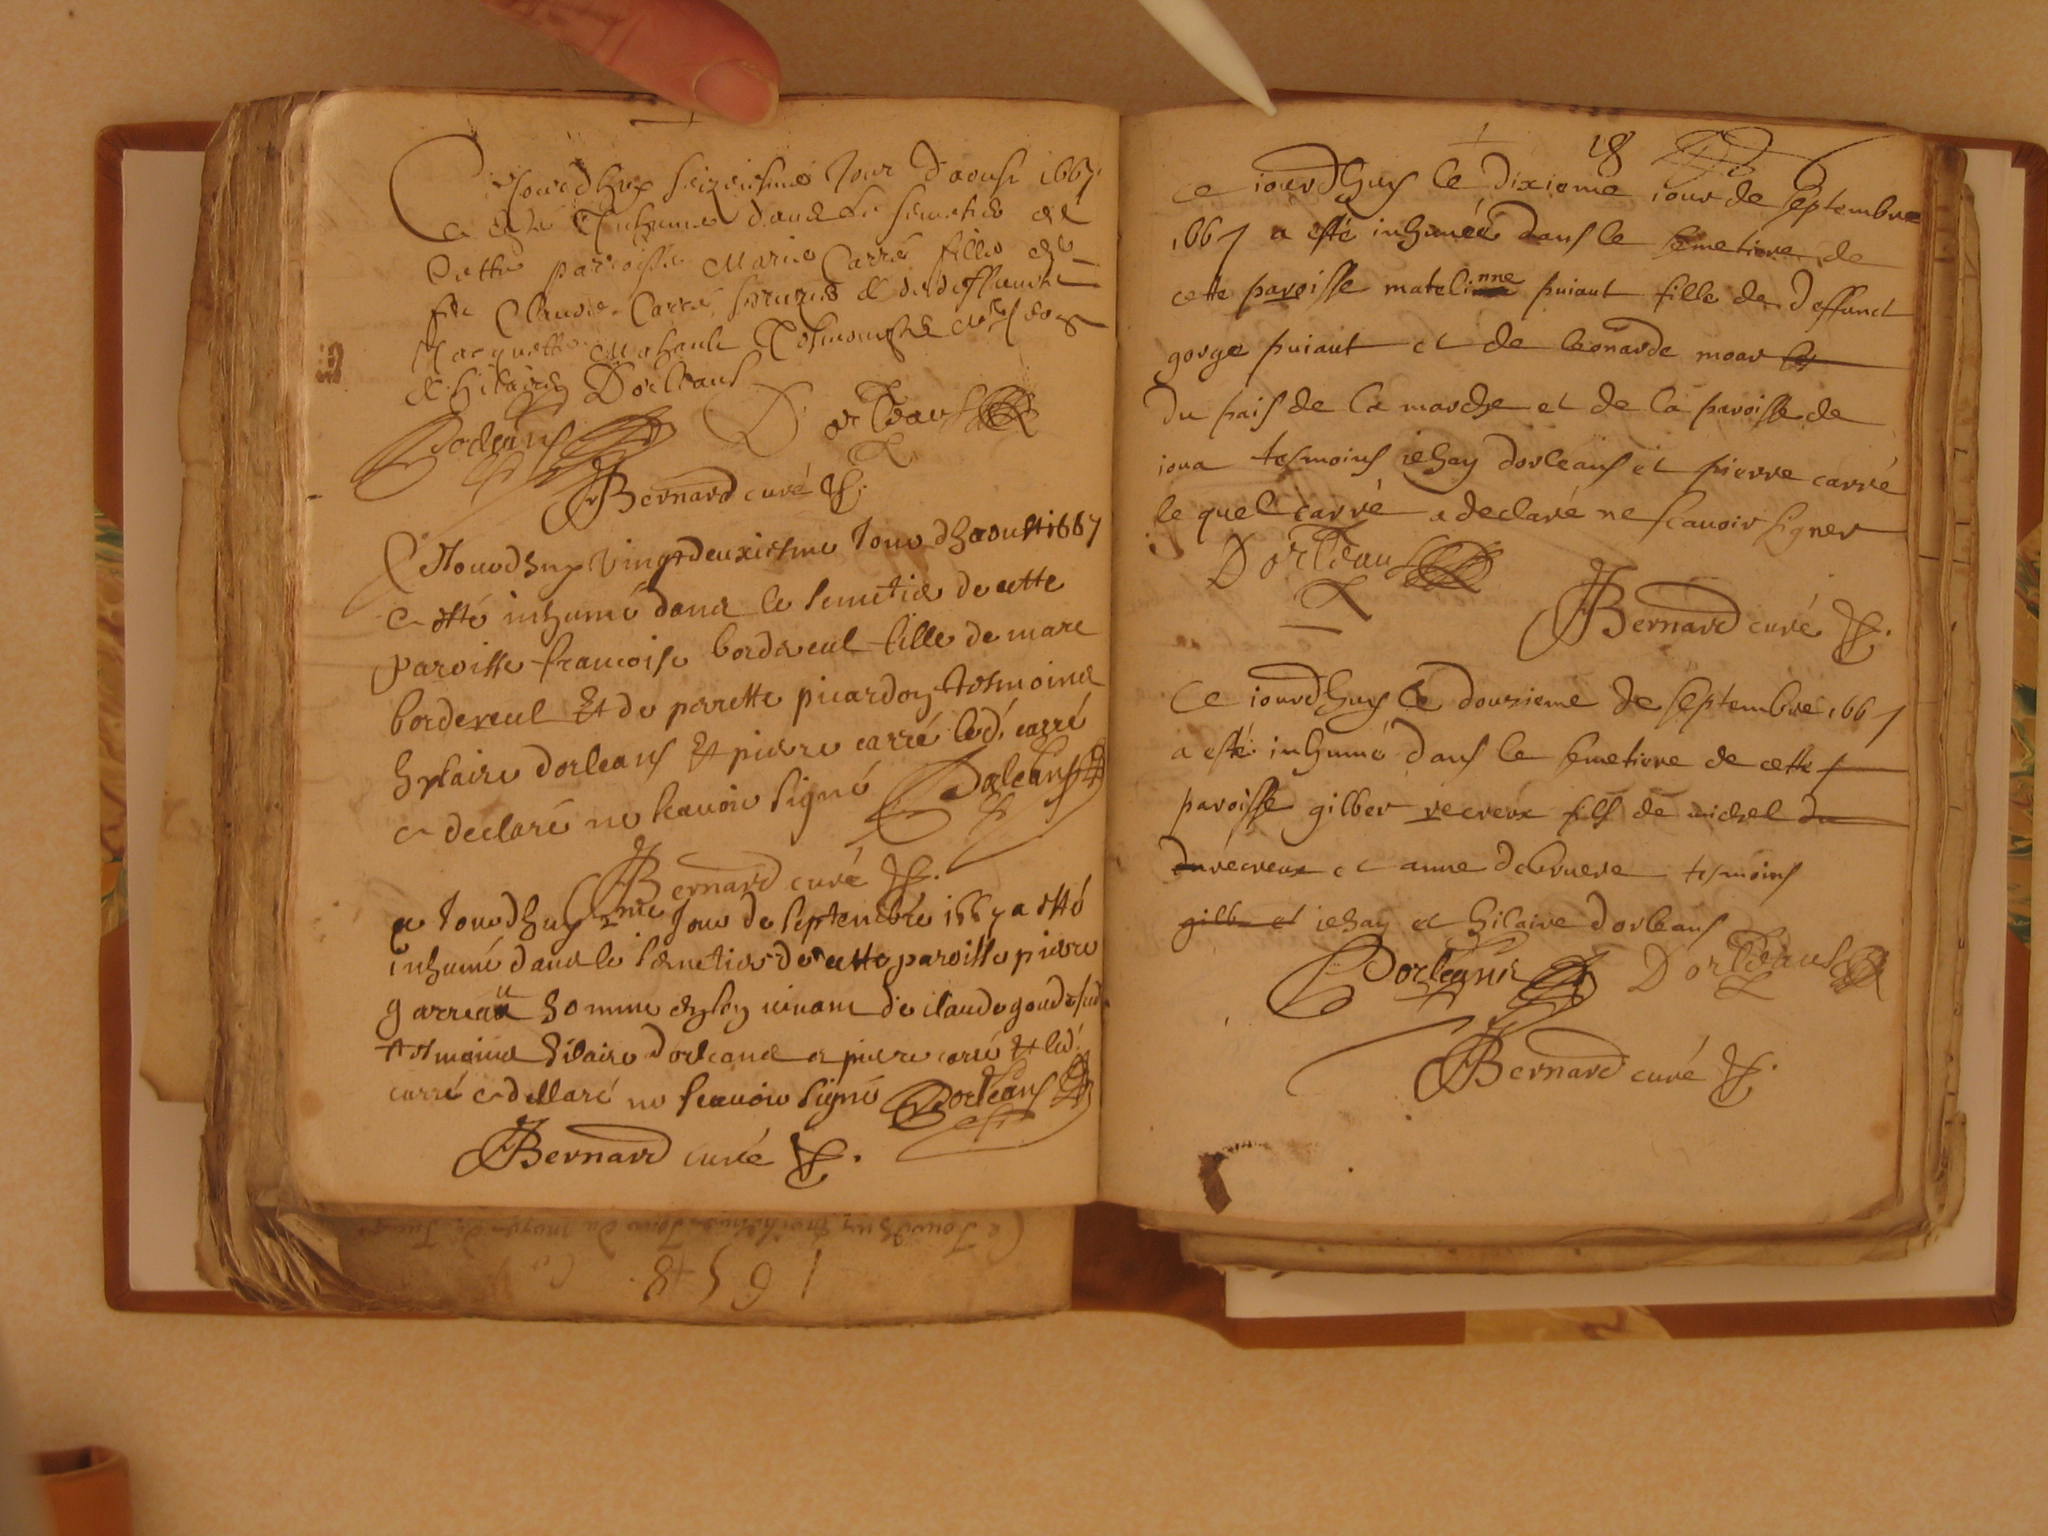 Ce Jourdhuy seizeiesme Jour d'aoust 1667
a esté Inhumé dans le semetier de
cette parroisse Marie Carré fille de
feu Claude Carré
Jacquette Tesmoings
& hilaire D'orleans
Dorleans D'orleans
Bernard curé
Ce Jourdhuy vingtdeuxiesme Jour dhaoust 1667
a esté inhumé dans le semetier de cette
paroisse francoise bordereul fille de marc
bordereul & de perrette picardon tesmoins
hylaire dorleans & pierre carré led. carré
a declaré ne scauoir signé Dorleans
Bernard curé
ce Jourdhuy 2me Jour de septembre 1667 a esté
inhumé dans le semetier de cette paroisse pierre
garreau homme viuant de claude
tesmoins hilaire dorleans et pierre carré & led.
carré a dellaré ne scauoir signé Dorleans
Bernard curé
1658
18
ce iourdhuy le dixieme iour de septembre
1667 a esté inhumée dans le semetiere de
cette paroisse matelinne puiaut fille de deffunct
gorge puiaut et de leonarde moar
du pais de la marche et de la paroisse de
ioua tesmoins iehan dorleans et pierre carré
le quel carré a declaré ne scauoir signer
Dorleans
Bernard curé
Ce iourdhuy le dousieme de septembre 1667
a esté inhumé dans le semetiere de cette
paroisse gilber recreux fils de michel du
du recreux et anne debruere tesmoins
gilb et iehan et hilaire dorleans
Dorleans Dorleans
Bernard curé